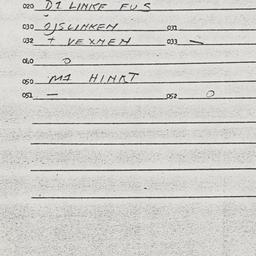 020 D1 LINKE FUS
030 OJSLINKEN 031
032 + VEXMEN 033 -
040 O
050 M1 HINKT
051 - 052 O